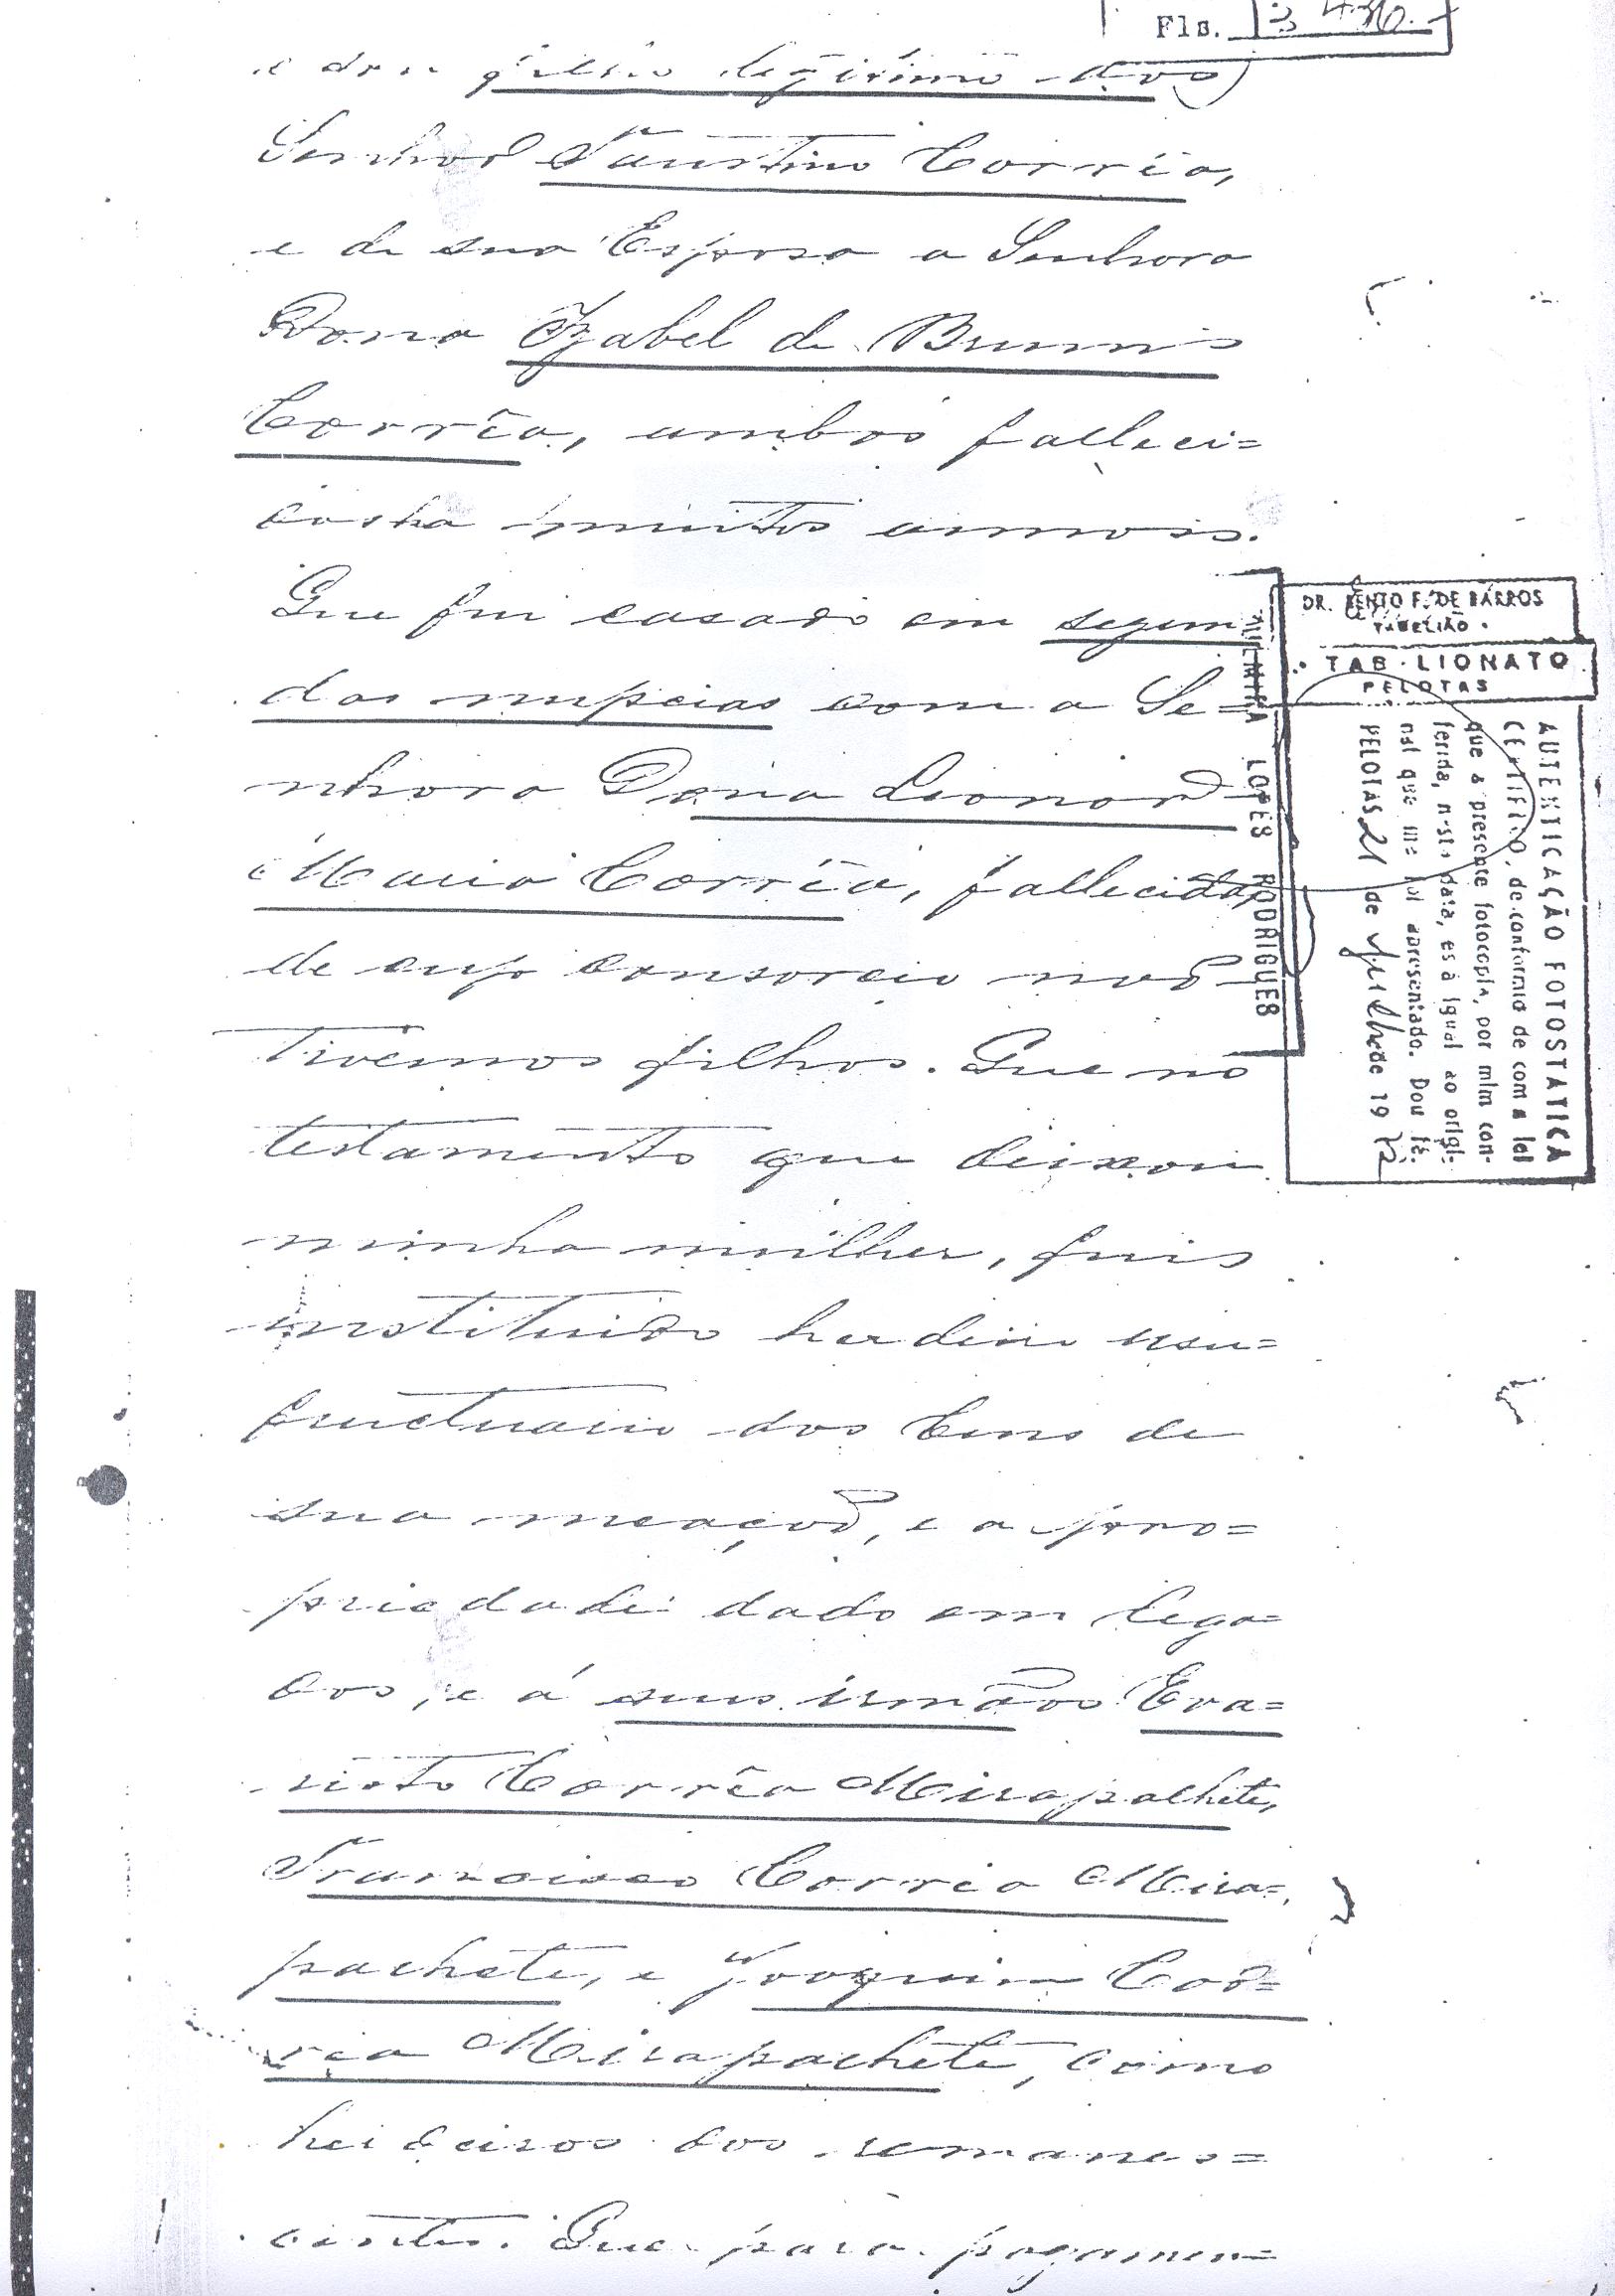 Fls. 3 436.
e sou filho legitimo dos
Senhor Faustino Corrêa,
e de sua Esposa a Senhora
Dona Izabel de Brumis
Corrêa, ambos falleci=
dos ha muitos annos.
Que fui casado em segun=
das nupcias com a Se=
nhora Dona Leonor
Maria Corrêa, fallecida,
de cujo consorcio não
tivemos filhos. Que no
testamento que deixou
minha mulher, fui
instituido herdeiro usu=
fructuario dos bens de
sua meação, e a pro=
priedade dado em lega=
dos, e á seus irmãos Eva=
risto Corrêa Mirapalhete,
Francisco Corrêa Mira=
pachete, e Joaquim Cor=
rêa Mirapachete, como
herdeiros dos remanes=
centes. Que para pagamen=
DR. BENTO F. DE BARROS
TABELIÃO
TABELIONATO
PELOTAS
AUTENTICAÇÃO FOTOSTATICA
CERTIFICO, de conformid de com a lei
que a presente fotocopia, por mim con-
ferida, nesta data, es à igual ao origi-
nal que me foi apresentado. Dou fé.
PELOTAS 21 de Julho de 19 72
LOPES RODRIGUES